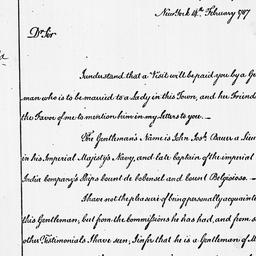 New York 14th. February 1787
Dr Sir
I understand that a Visit will be paid you by a Gen
man who is to be married to a Lady in this Town, and her Friends
the Favor of me to mention him in my Letters to you._
The Gentleman's Name is John Josh. Bauer a Lieu
in his Imperial Majesty's Navy, and late Captain of the imperial
India Company's Ships Count de Cobensel and Count Belgioioso._
I have not the pleasure of being personally acquainte
this Gentleman, but from the Commissions he has had, and from s
other Testimonials I have seen, I infer that he is a Gentleman of M